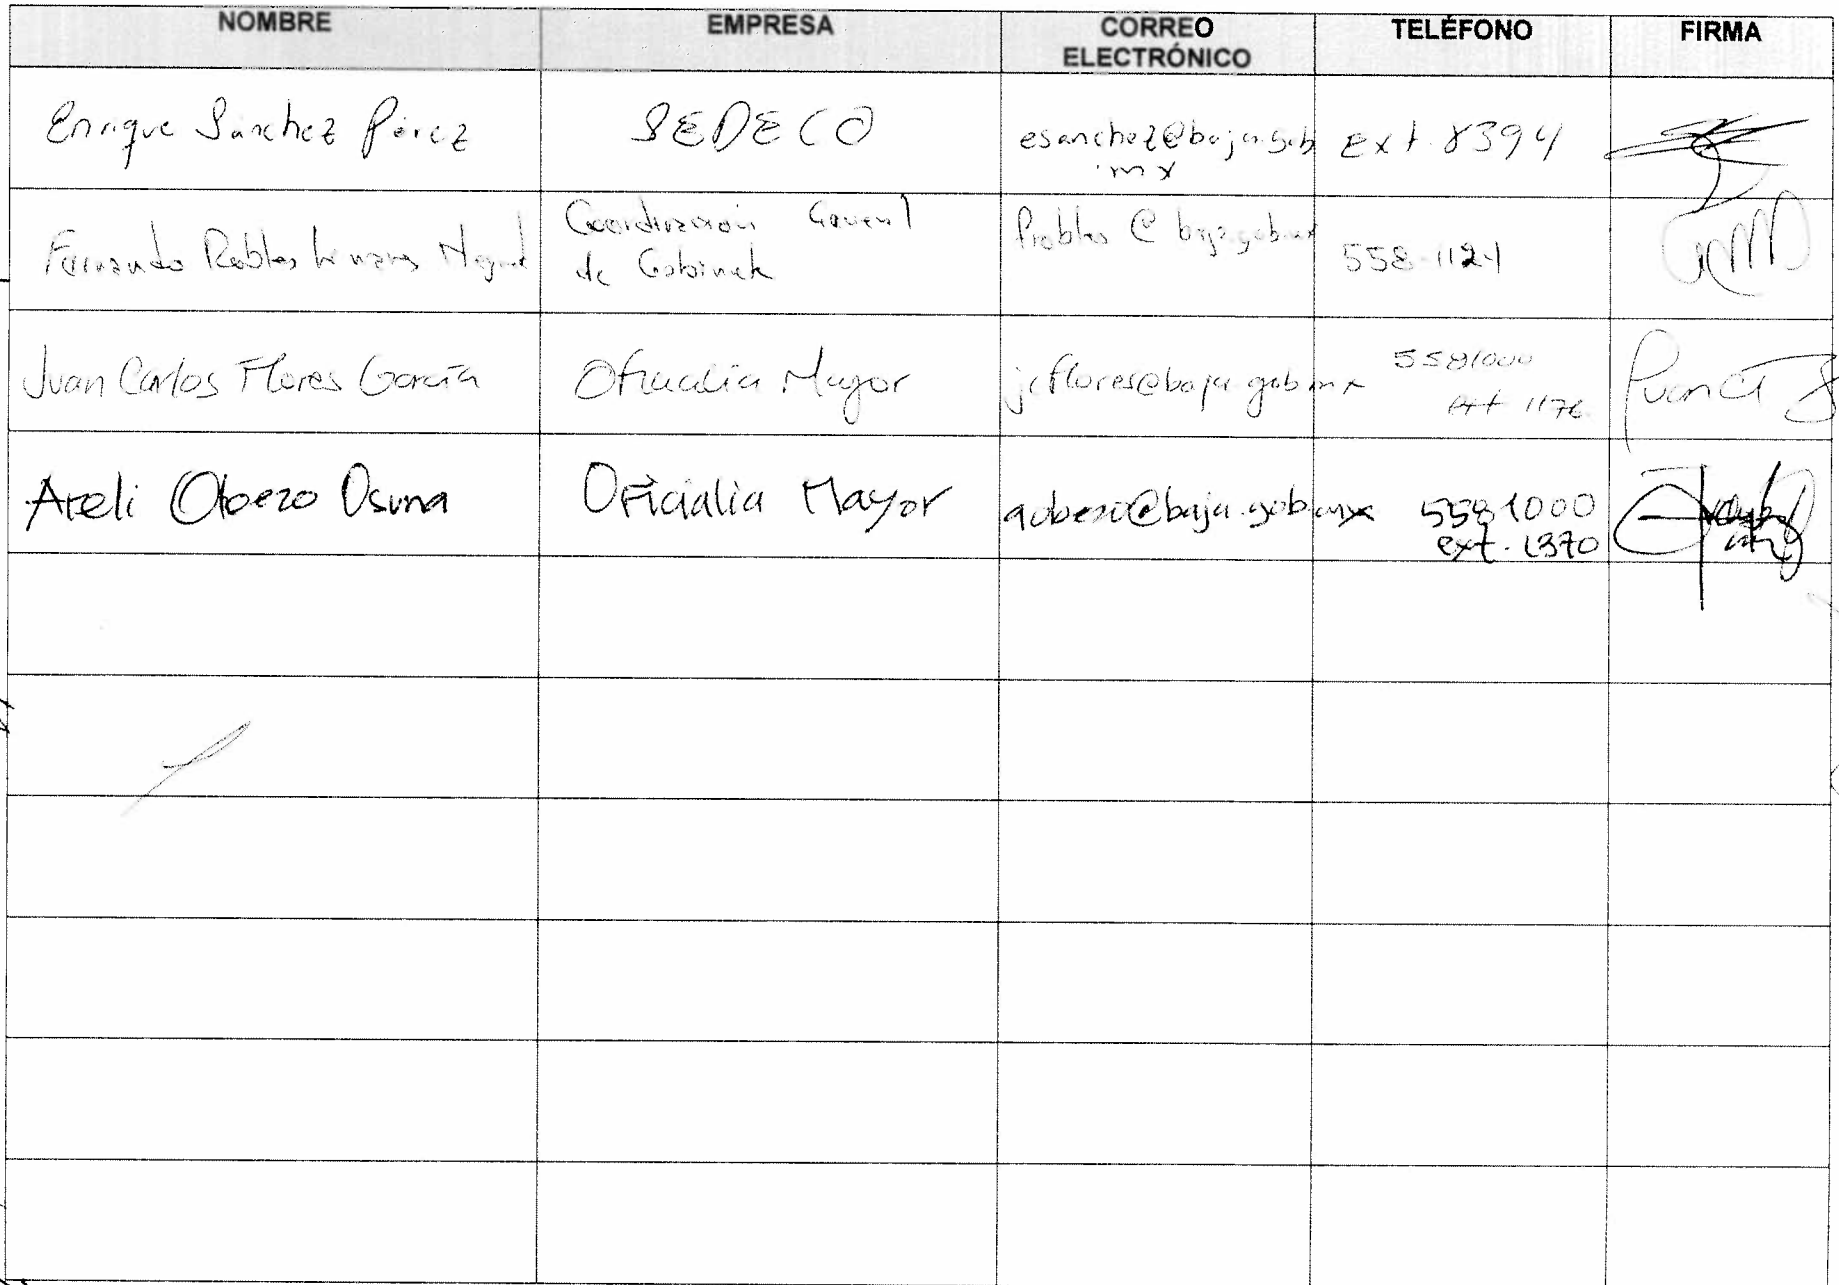 NOMBRE EMPRESA CORREO ELECTRÓNICO TELÉFONO FIRMA
Enrique Sánchez Pérez SEDECO esanchez@baja.gob.mx Ext. 8394
Fernando Robles Coordinación General de Gabinete frobles@baja.gob.mx 558-1121
Juan Carlos Flores García Oficialia Mayor jcflores@baja.gob.mx 5581000 ext 1176
Areli Obezo Osuna Oficialia Mayor aobezo@baja.gob.mx 5581000 ext. 1370